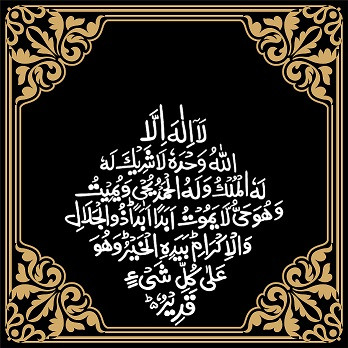 لَآ اِلٰهَ اِلَّا
اللهُ وَحْدَهٗ لَا شَرِيْكَ لَهٗ
لَهُ الْمُلْكُ وَلَهُ الْحَمْدُ يُحْيٖ وَيُمِيْتُ
وَهُوَ حَيٌّ لَّا يَمُوْتُ اَبَدًا اَبَدًا ذُو الْجَلَالِ
وَالْاِكْرَامِ بِيَدِهِ الْخَيْرُ وَهُوَ
عَلٰى كُلِّ شَيْءٍ
قَدِيْرٌ